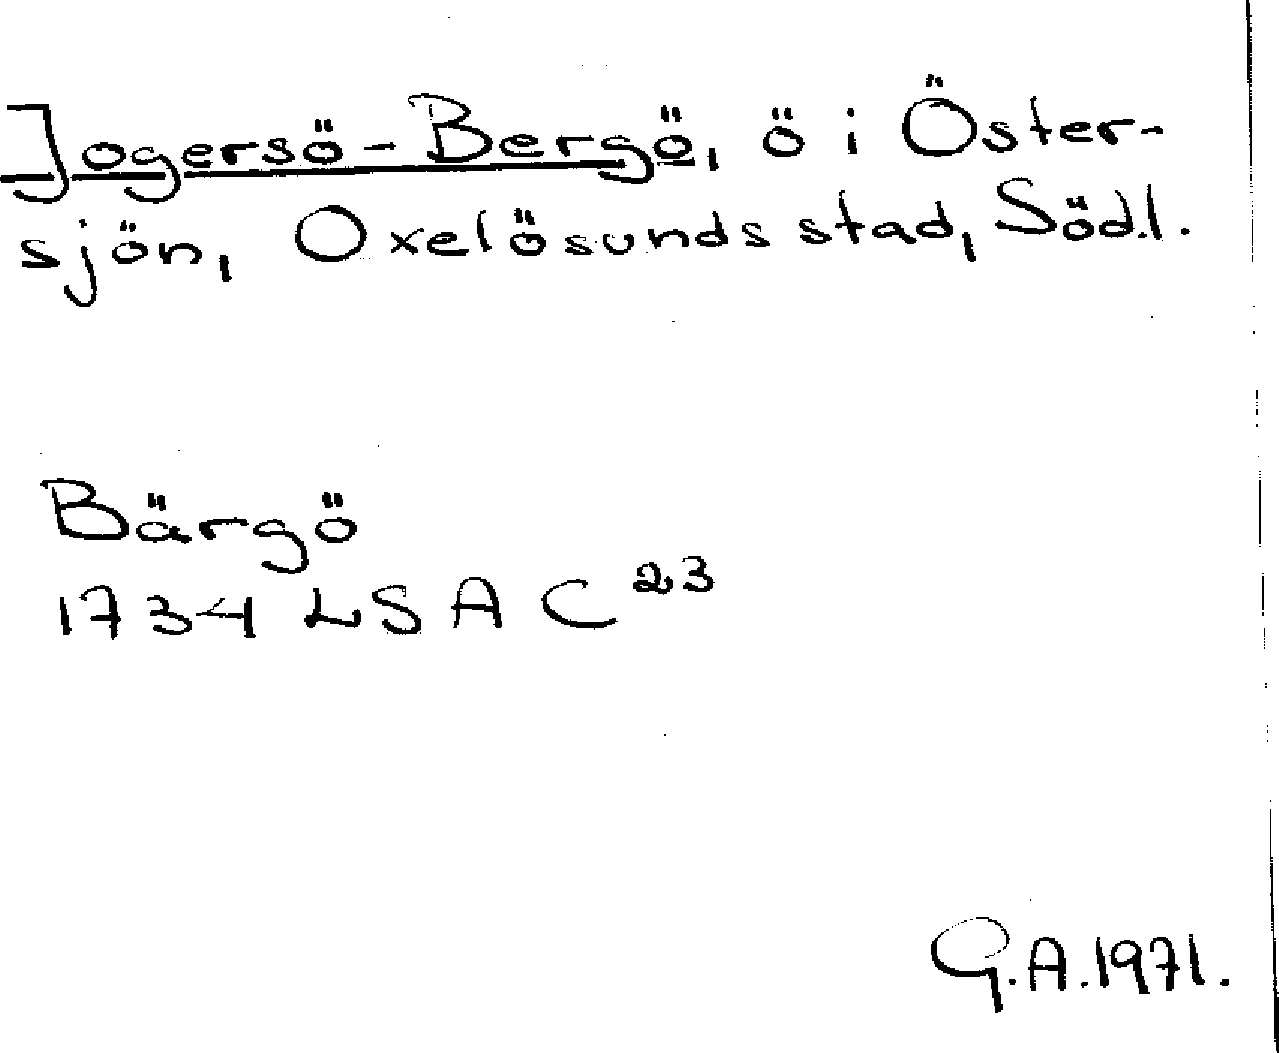 Jogersö-Bergö, ö i Öster-
sjön, Oxelösunds stad, Södl.
Bärgö
1734 LSA C 23
G.A. 1971.